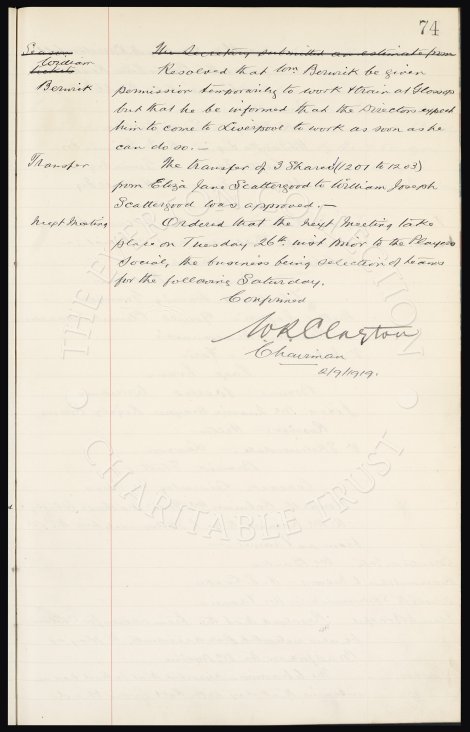 74
Season The Secretary submitted an estimate from
Tickets
William Resolved that Wm Berwick be given
Berwick permission temporarily to work & train at Glossop
but that he be informed that the Directors expect
him to come to Liverpool to work as soon as he
can do so. —
Transfer The transfer of 3 Shares (1201 to 1203)
from Eliza Jane Scattergood to William Joseph
Scattergood was approved. —
Next Meeting Ordered that the next Meeting take
place on Tuesday 26th inst prior to the Players
Social, the business being selection of teams
for the following Saturday.
Confirmed
W R Clayton
Chairman
2/9/1919.
THE EVERTON COLLECTION
CHARITABLE TRUST